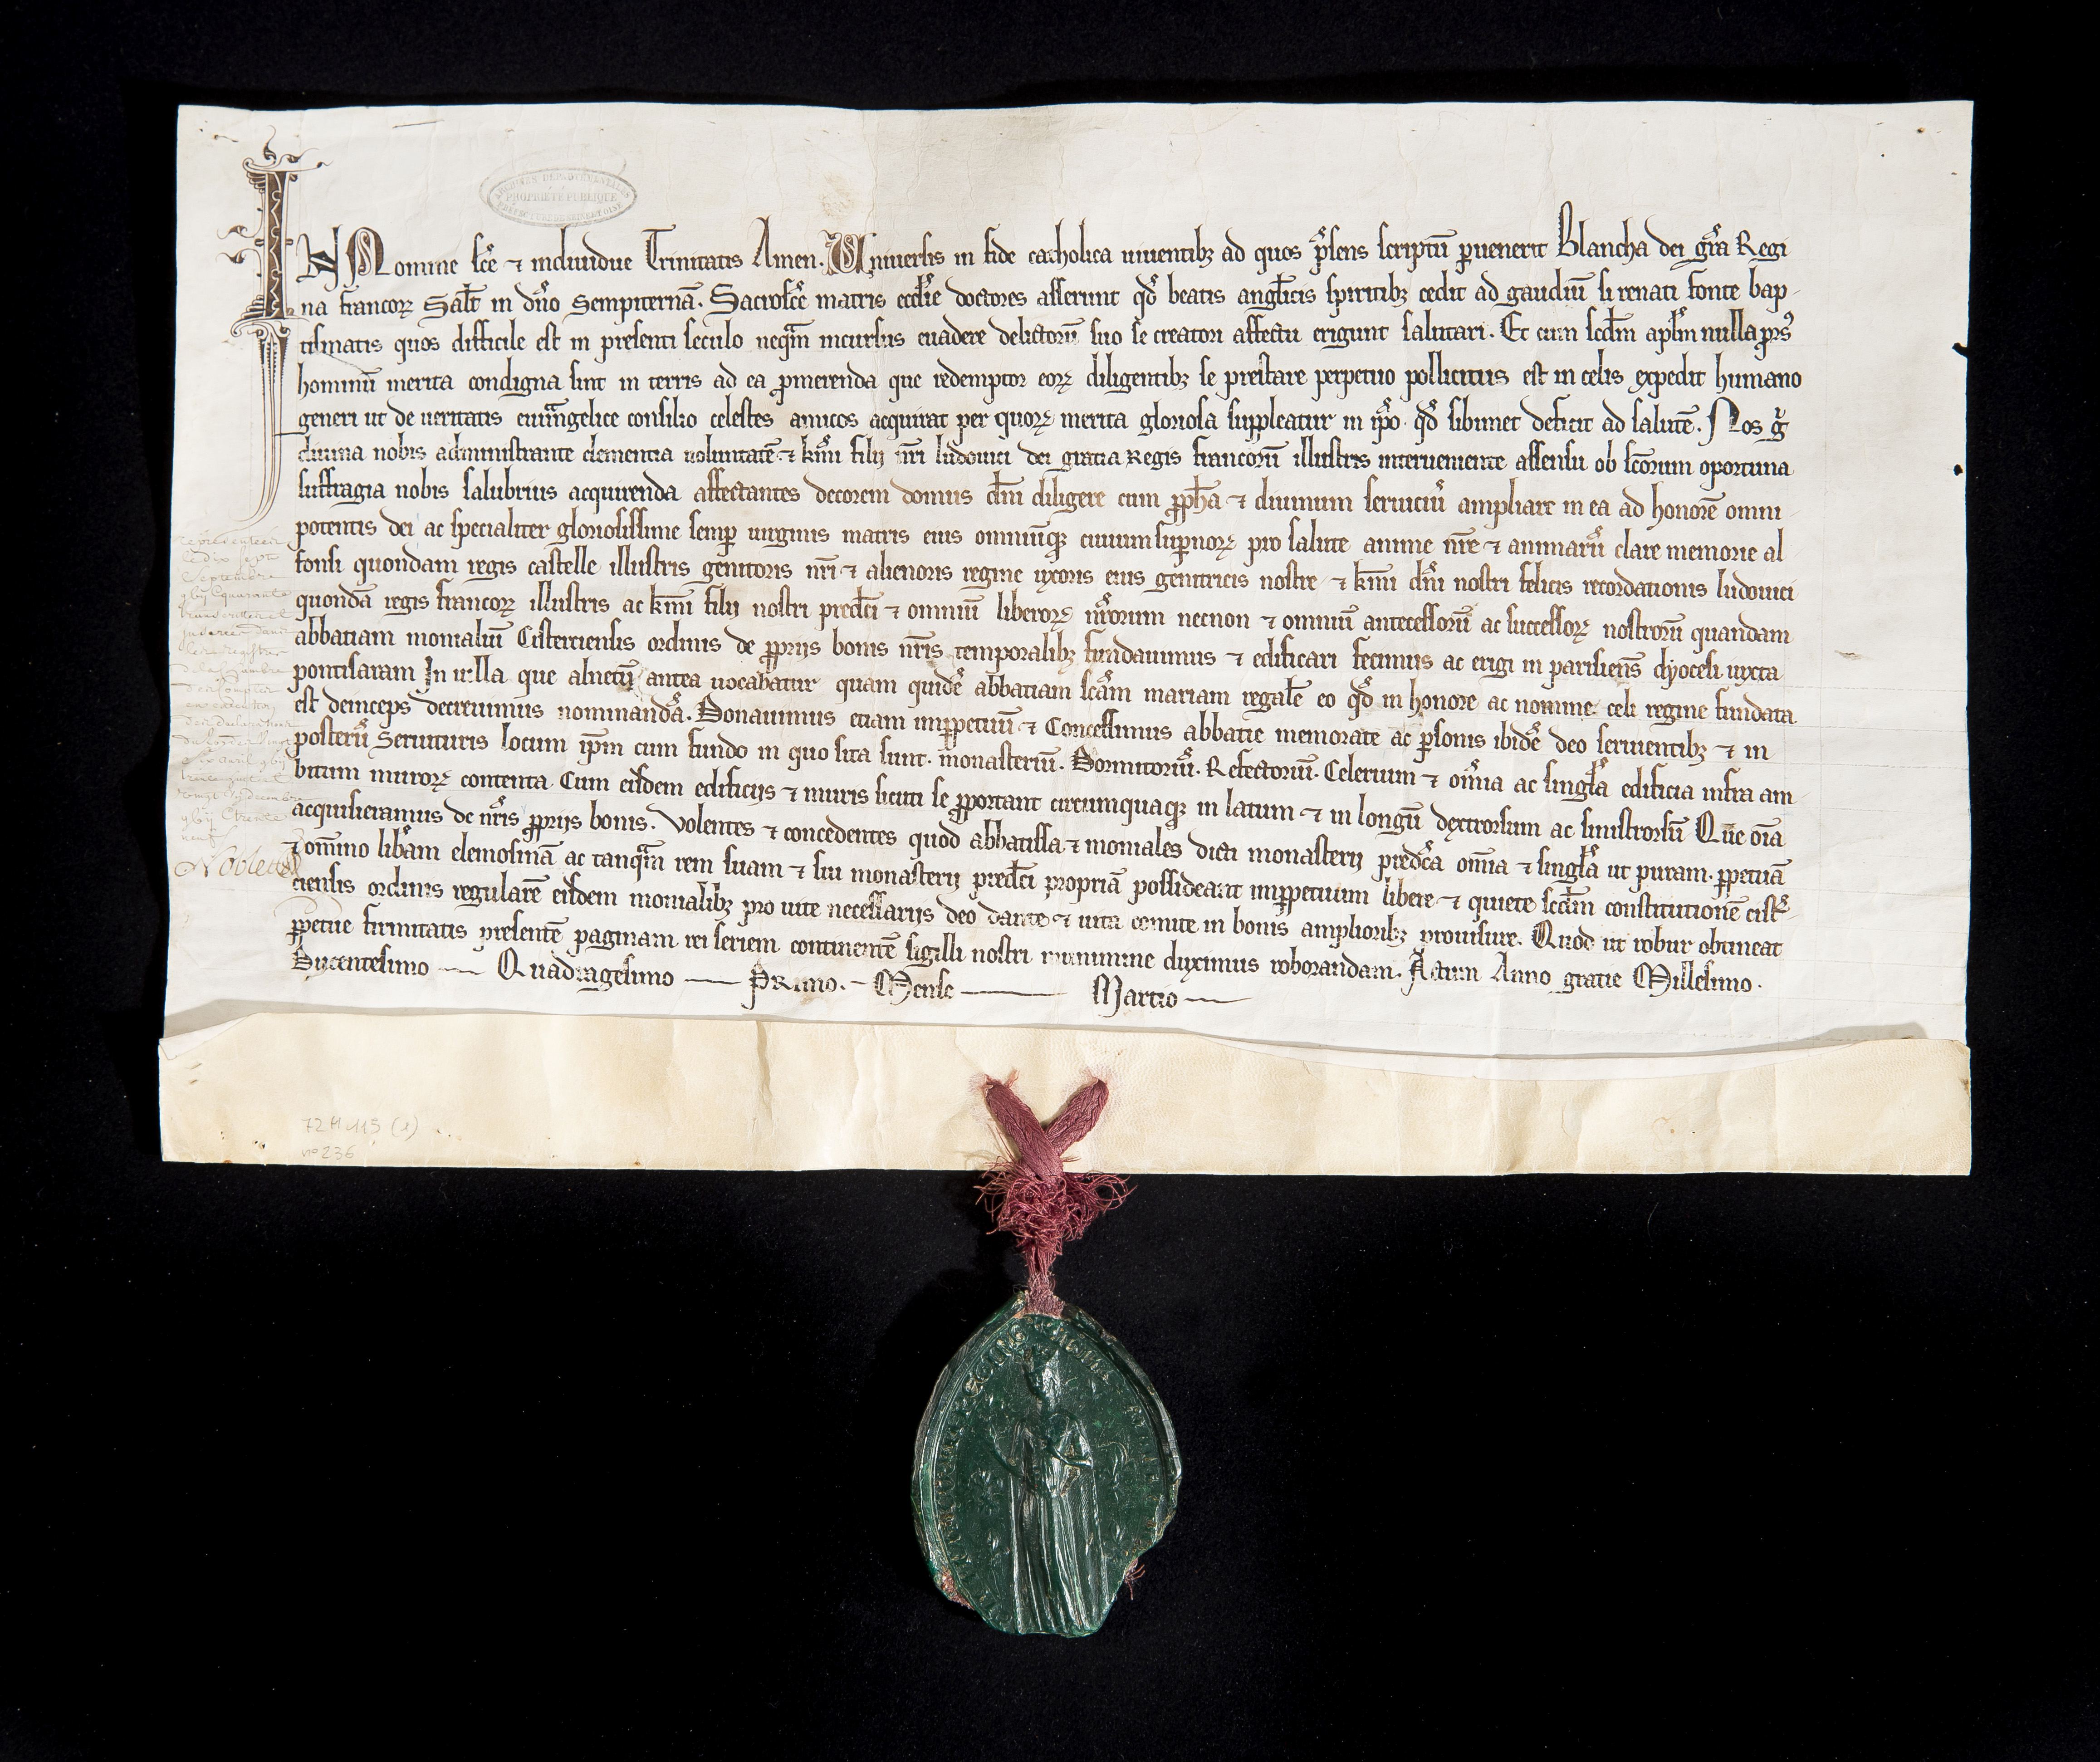 ARCHIVES DÉPARTEMENTALES
PROPRIÉTÉ PUBLIQUE
PRÉFECTURE DE SEINE ET OISE
IN Nomine sc̃e ⁊ indiuidue Trinitatis Amen. Uniuersis in fide catholica uiuentibꝫ ad quos p̃sens scriptũ puenerit Blancha dei gr̃a Regi
na francoꝝ Salt̃ in dño Sempiternã. Sacrosc̃e matris eccl̃ie doctores asserunt qđ beatis angl̃icis spiritibꝫ cedit ad gaudiũ si renati fonte bap-
tismatis quos difficile est in presenti seculo neqᵃm incursus euadere delictorũ suo se creatori affectu erigunt salutari. Et cum scđm apl̃m nulla prs̾
hominũ merita condigna sint in terris ad ea ꝓmerenda que redemptor eoꝝ diligentibꝫ se prestare perpetuo pollicitus est in celis expedit humano
generi ut de ueritatis euuãngelice consilio celestes amicos acquirat per quoꝝ merita gloriosa suppleatur in ip̃o qđ sibimet deficit ad salutẽ. Nos g̃
diuina nobis administrante clementia uoluntatẽ ⁊ km̃i filij nr̃i ludouici dei gratia Regis francorũ illustris interueniente assensu ob sc̃orum oportuna
suffragia nobis salubrius acquirenda affectantes decorem domus dñi diligere cum ꝓph̃a ⁊ diuinum seruiciũ ampliare in ea ad honorẽ omni
potentis dei ac specialiter gloriosissime semꝑ uirginis matris eius omniũqꝫ ciuium suꝑnoꝝ pro salute anime nr̃e ⁊ animarũ clare memorie al
fonsi quondam regis castelle illustris genitoris nr̃i ⁊ alienoris regine uxoris eius genitricis nostre ⁊ km̃i dñi nostri felicis recordationis ludouici
quondã regis francoꝝ illustris ac km̃i filij nostri predc̃i ⁊ omniũ liberoꝝ nr̃orum necnon ⁊ omniũ antecessorũ ac successoꝝ nostrorũ quandam
abbatiam monialiũ Cisterciensis ordinis de ꝓprijs bonis nr̃is temporalibꝫ fundauimus ⁊ edificari fecimus ac erigi in parisiens̃ dyocesi iuxta
pontisaram In uilla que alnetũ antea uocabatur quam quidẽ abbatiam sc̃am mariam regalẽ eo qđ in honore ac nomine celi regine fundata
est deinceps decreuimus nominandã. Donauimus etiam imꝑpetuũ ⁊ Concessimus abbatie memorate ac ꝑsonis ibidẽ deo seruientibꝫ ⁊ in
posterũ Seruituris locum ip̃m cum fundo in quo sita sunt. monasteriũ. Dormitoriũ. Refectoriũ. Celerium ⁊ om̃ia ac singl̃a edificia infra am
bitum muroꝝ contenta. Cum eisdem edificijs ⁊ muris sicuti se ꝓportant circumquaqꝫ in latum ⁊ in longũ dextrorsum ac sinistrorsũ Que om̃ia
acquisieramus de nr̃is ꝓprijs bonis. Volentes ⁊ concedentes quod abbatissa ⁊ moniales dicti monasterij predc̃a om̃ia ⁊ singl̃a ut puram. ꝑpetuã
⁊ om̃ino lib̃am elemosinã ac tanqᵃm rem suam ⁊ sui monasterij predc̃i propriã possideant imꝑpetuum libere ⁊ quiete scđm constitutionẽ cist̾
ciensis ordinis regularẽ eisdem monialibꝫ pro uite necessarijs deo dante ⁊ uita comite in bonis amplioribꝫ prouisure. Quod ut robur obtineat
ꝑpetue firmitatis presentẽ paginam rei seriem continentẽ sigilli nostri munimine duximus roborandam. Actum Anno gratie Millesimo.
Ducentesimo Quadragesimo Primo. Mense Martio
le dix sept
Septembre
quarante
Nobletto
72 H 115 (1)
n° 236